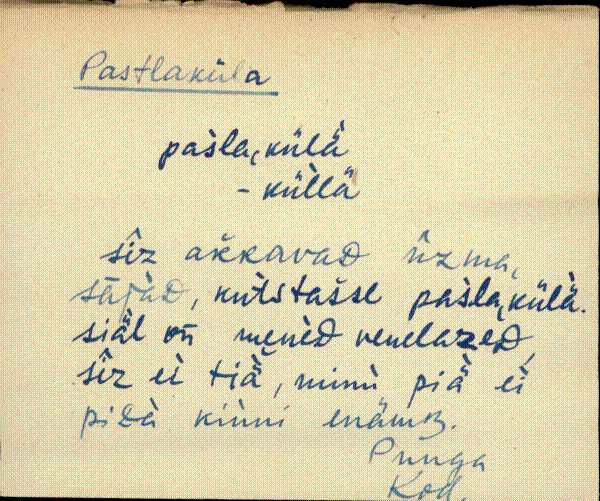 Pastlaküla
pàsla,külä̀
- kül̀lä̀
sîz akkavad ûzma,
sājàd, kutstasse pàsla,külä̀.
siäl on menèd venelazed,
sîz ei tiä̀, minù piä̀ ei
pidà kinni enämb.
Punga
Kod.